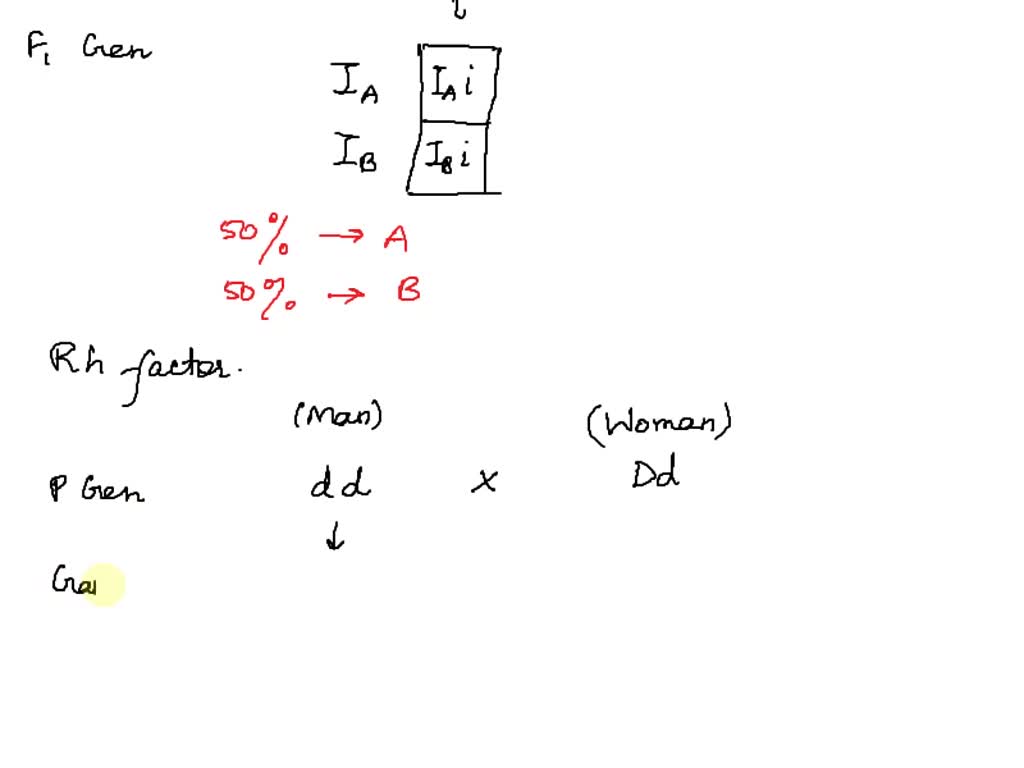 i
F₁ Gen
I_A I_A i
I_B I_B i
50% → A
50% → B
Rh factor.
(Man) (Woman)
P Gen dd x Dd
↓
Ga